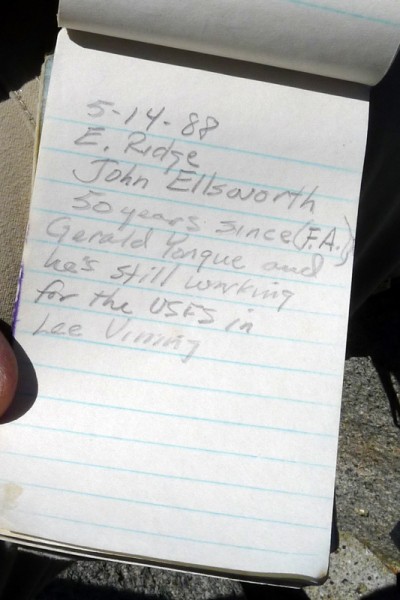 5-14-88
E. Ridge
John Ellsworth
50 years since (F.A.)
Gerald Yorque and
he's still working
for the USFS in
Lee Vining